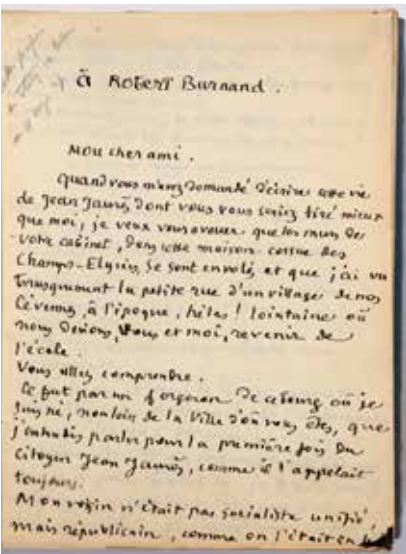 à Robert Burnand.
Mon cher ami.
Quand vous m'avez demandé d'écrire cette vie
de Jean Jaurès dont vous vous seriez tiré mieux
que moi, je veux vous avouer que les murs de
votre cabinet, dans cette maison cossue des
Champs-Elysées, se sont envolés, et que j'ai vu
brusquement la petite rue d'un village de nos
Cévennes, à l'époque, hélas ! lointaine où
nous devions, vous et moi, revenir de
l'école.
Vous allez comprendre.
Ce fut par un forgeron de ce bourg où je
suis né, non loin de la ville d'où vous êtes, que
j'entendis parler pour la première fois du
citoyen Jean Jaurès, comme il l'appelait
toujours.
Mon voisin n'était pas socialiste unifié
mais républicain, comme on l'était en